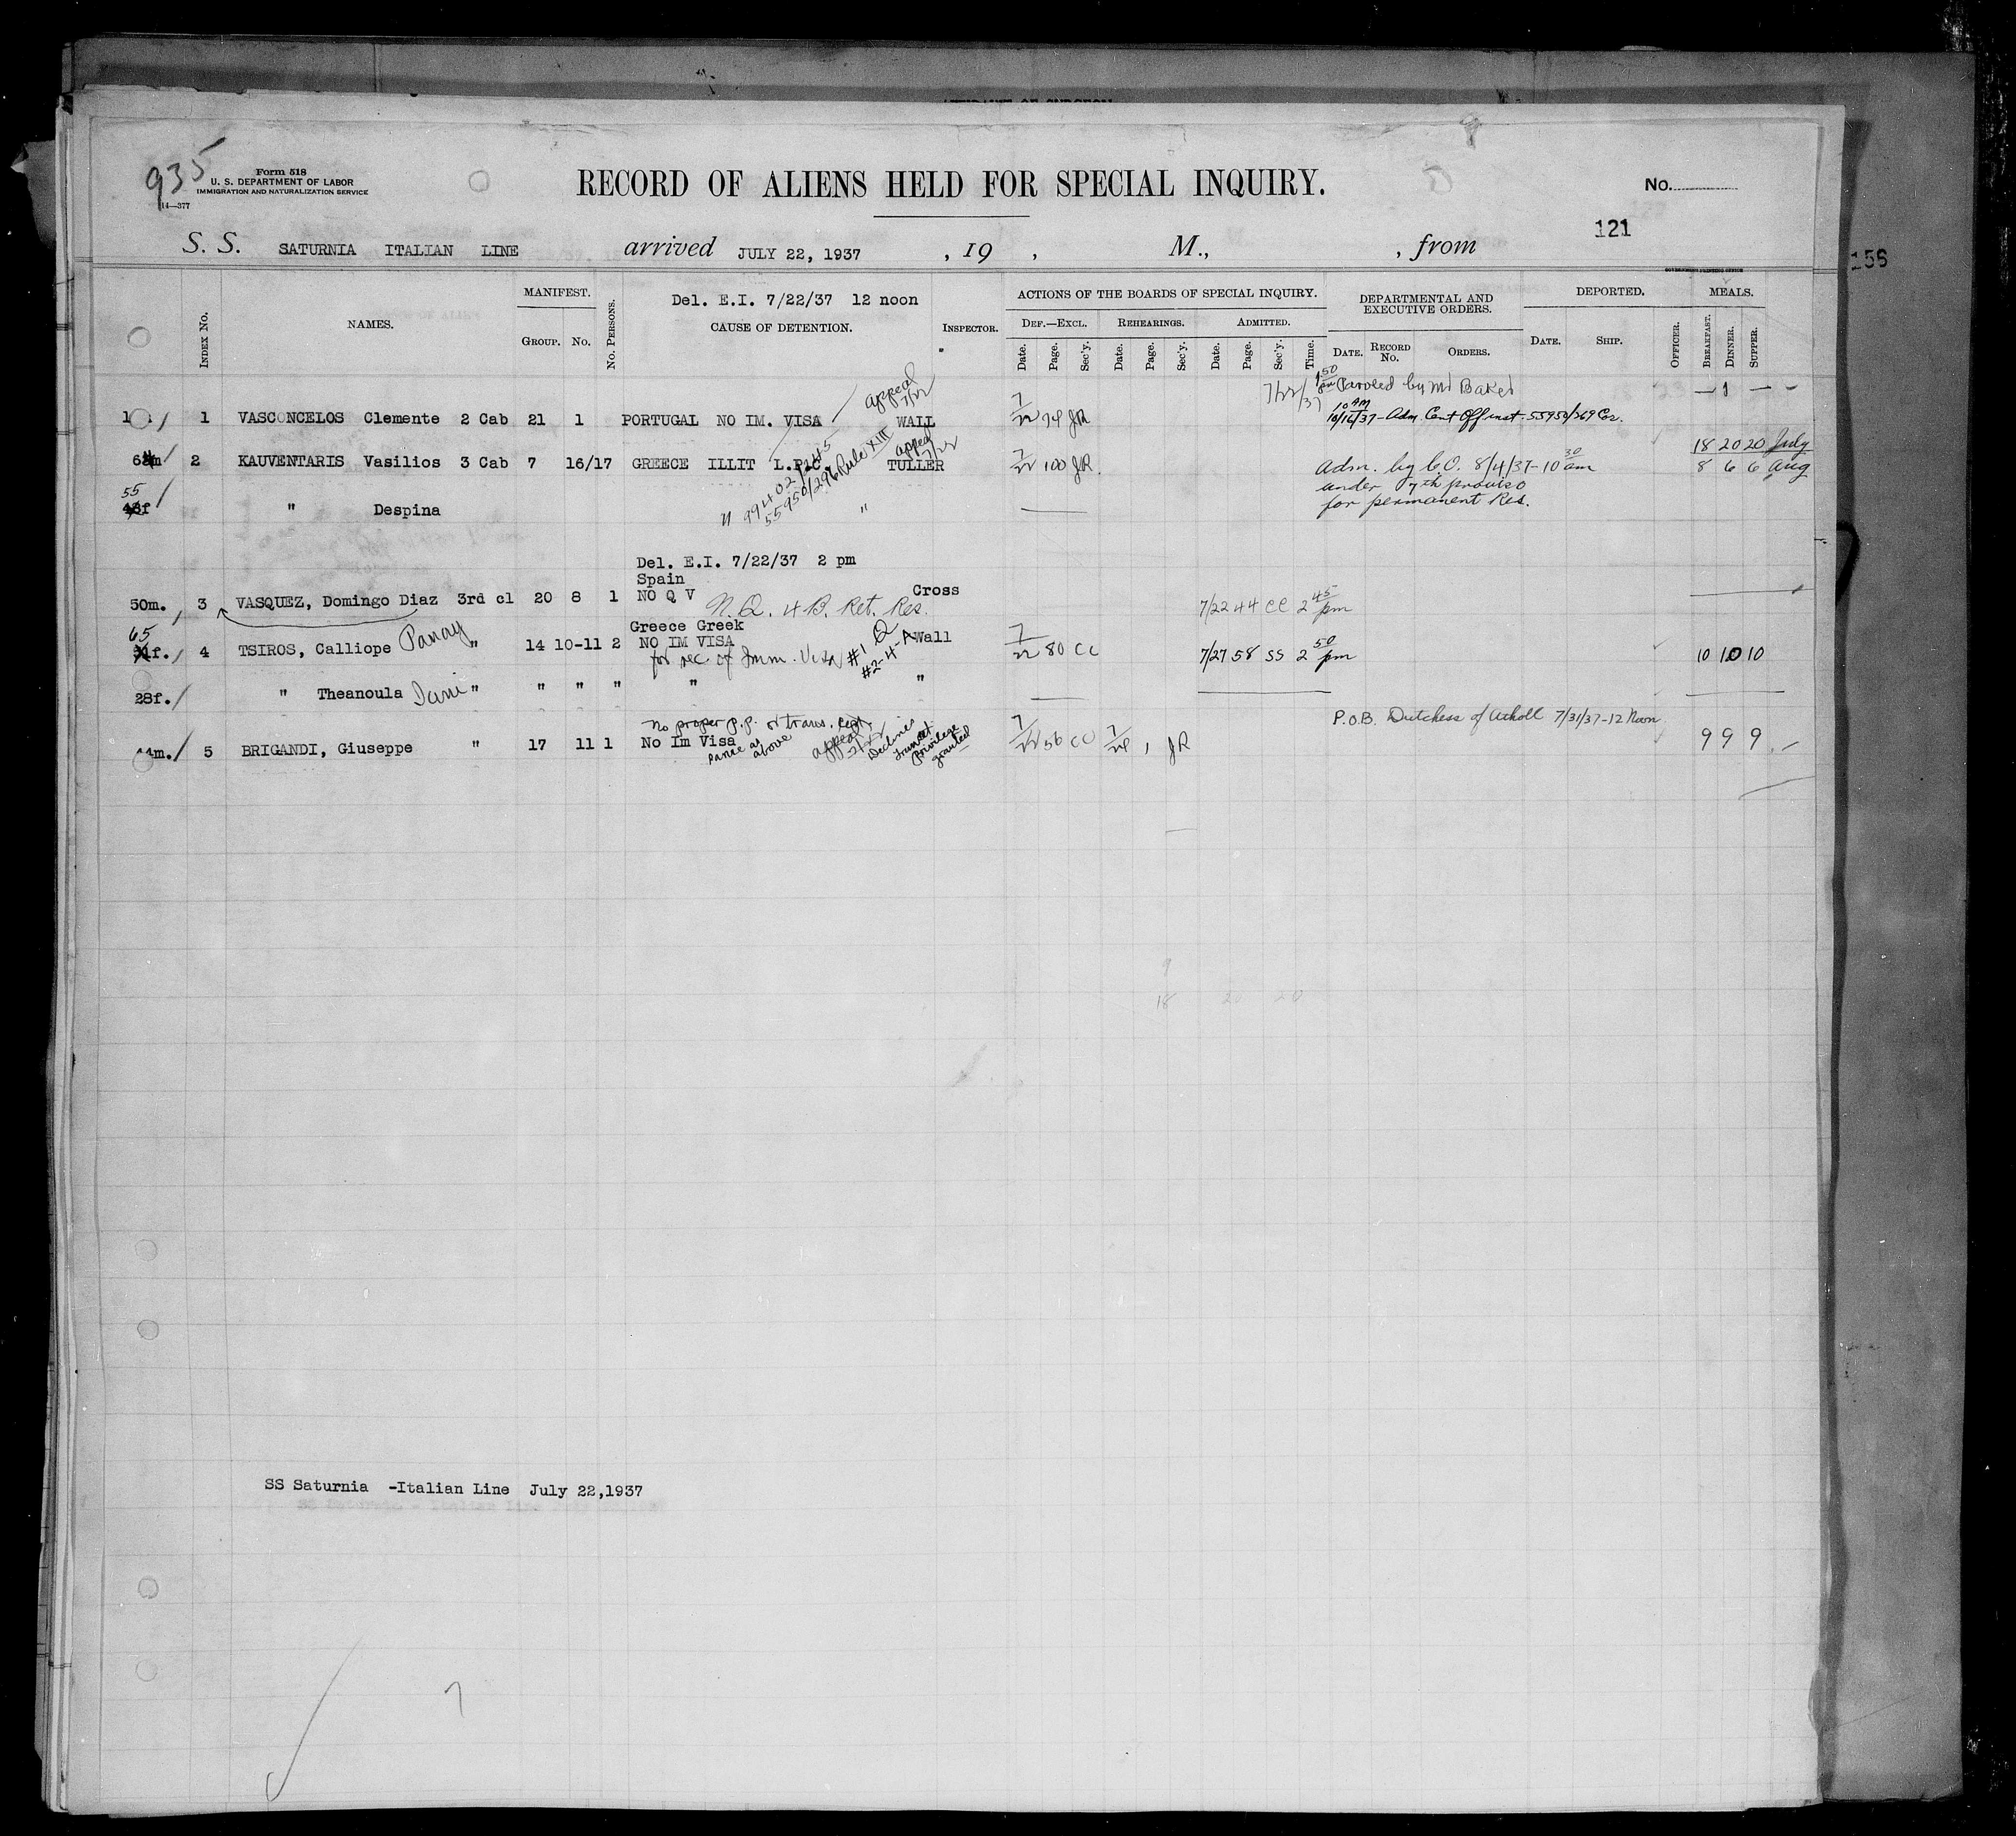 935
Form 518
U. S. DEPARTMENT OF LABOR
IMMIGRATION AND NATURALIZATION SERVICE
14—377
RECORD OF ALIENS HELD FOR SPECIAL INQUIRY.
No.
121
156
S. S. SATURNIA ITALIAN LINE arrived JULY 22, 1937, 19 , M., , from
GOVERNMENT PRINTING OFFICE
INDEX No.
NAMES.
MANIFEST.
GROUP. No.
No. PERSONS.
Del. E.I. 7/22/37 12 noon
CAUSE OF DETENTION.
INSPECTOR.
ACTIONS OF THE BOARDS OF SPECIAL INQUIRY.
DEF.—EXCL. REHEARINGS. ADMITTED.
Date. Page. Sec'y. Date. Page. Sec'y. Date. Page. Sec'y. Time.
DEPARTMENTAL AND EXECUTIVE ORDERS.
DATE. RECORD No. ORDERS.
DEPORTED.
DATE. SHIP.
OFFICER.
MEALS.
BREAKFAST. DINNER. SUPPER.
appeal 7/22
7/22/37 1 50 pm Paroled by Mr Baker — 1 —
1 VASCONCELOS Clemente 2 Cab 21 1 PORTUGAL NO IM. VISA WALL 7/22 74 JR 10 AM 10/16/37-Adm. Cent Off inst. 55950/369
18 20 20 July
2 KAUVENTARIS Vasilios 3 Cab 7 16/17 GREECE ILLIT L.P.C. TULLER appeal 7/22 7/22 100 JR. Adm. by C.O. 8/4/37-10 30 am 8 6 6 Aug
99402/245
55950/296 Rule XIII
under 7th proviso
for permanent Res.
55
48f " Despina "
Del. E.I. 7/22/37 2 pm
Spain
50m. 3 VASQUEZ, Domingo Diaz 3rd cl 20 8 1 NO Q V Cross
N.Q. 4 B. Ret. Res. 7/22 44 CC 2 45 pm
Greece Greek
65
f. 4 TSIROS, Calliope Panay " 14 10-11 2 NO IM VISA #1 Q Wall 7/22 80 CC 7/27 58 SS 2 50 pm 10 10 10
for rec. of Imm. Visa #2-4-A
28f. " Theanoula " " " " " "
no proper p.p. or trans. cert.
P.O.B. Dutchess of Atholl 7/31/37-12 Noon
44m. 5 BRIGANDI, Giuseppe " 17 11 1 No Im Visa 7/22 56 CC 7/24 1 JR 9 9 9
same as above
appeal 7/22
Declines transit privilege granted
9
18 20 20
SS Saturnia -Italian Line July 22,1937
7